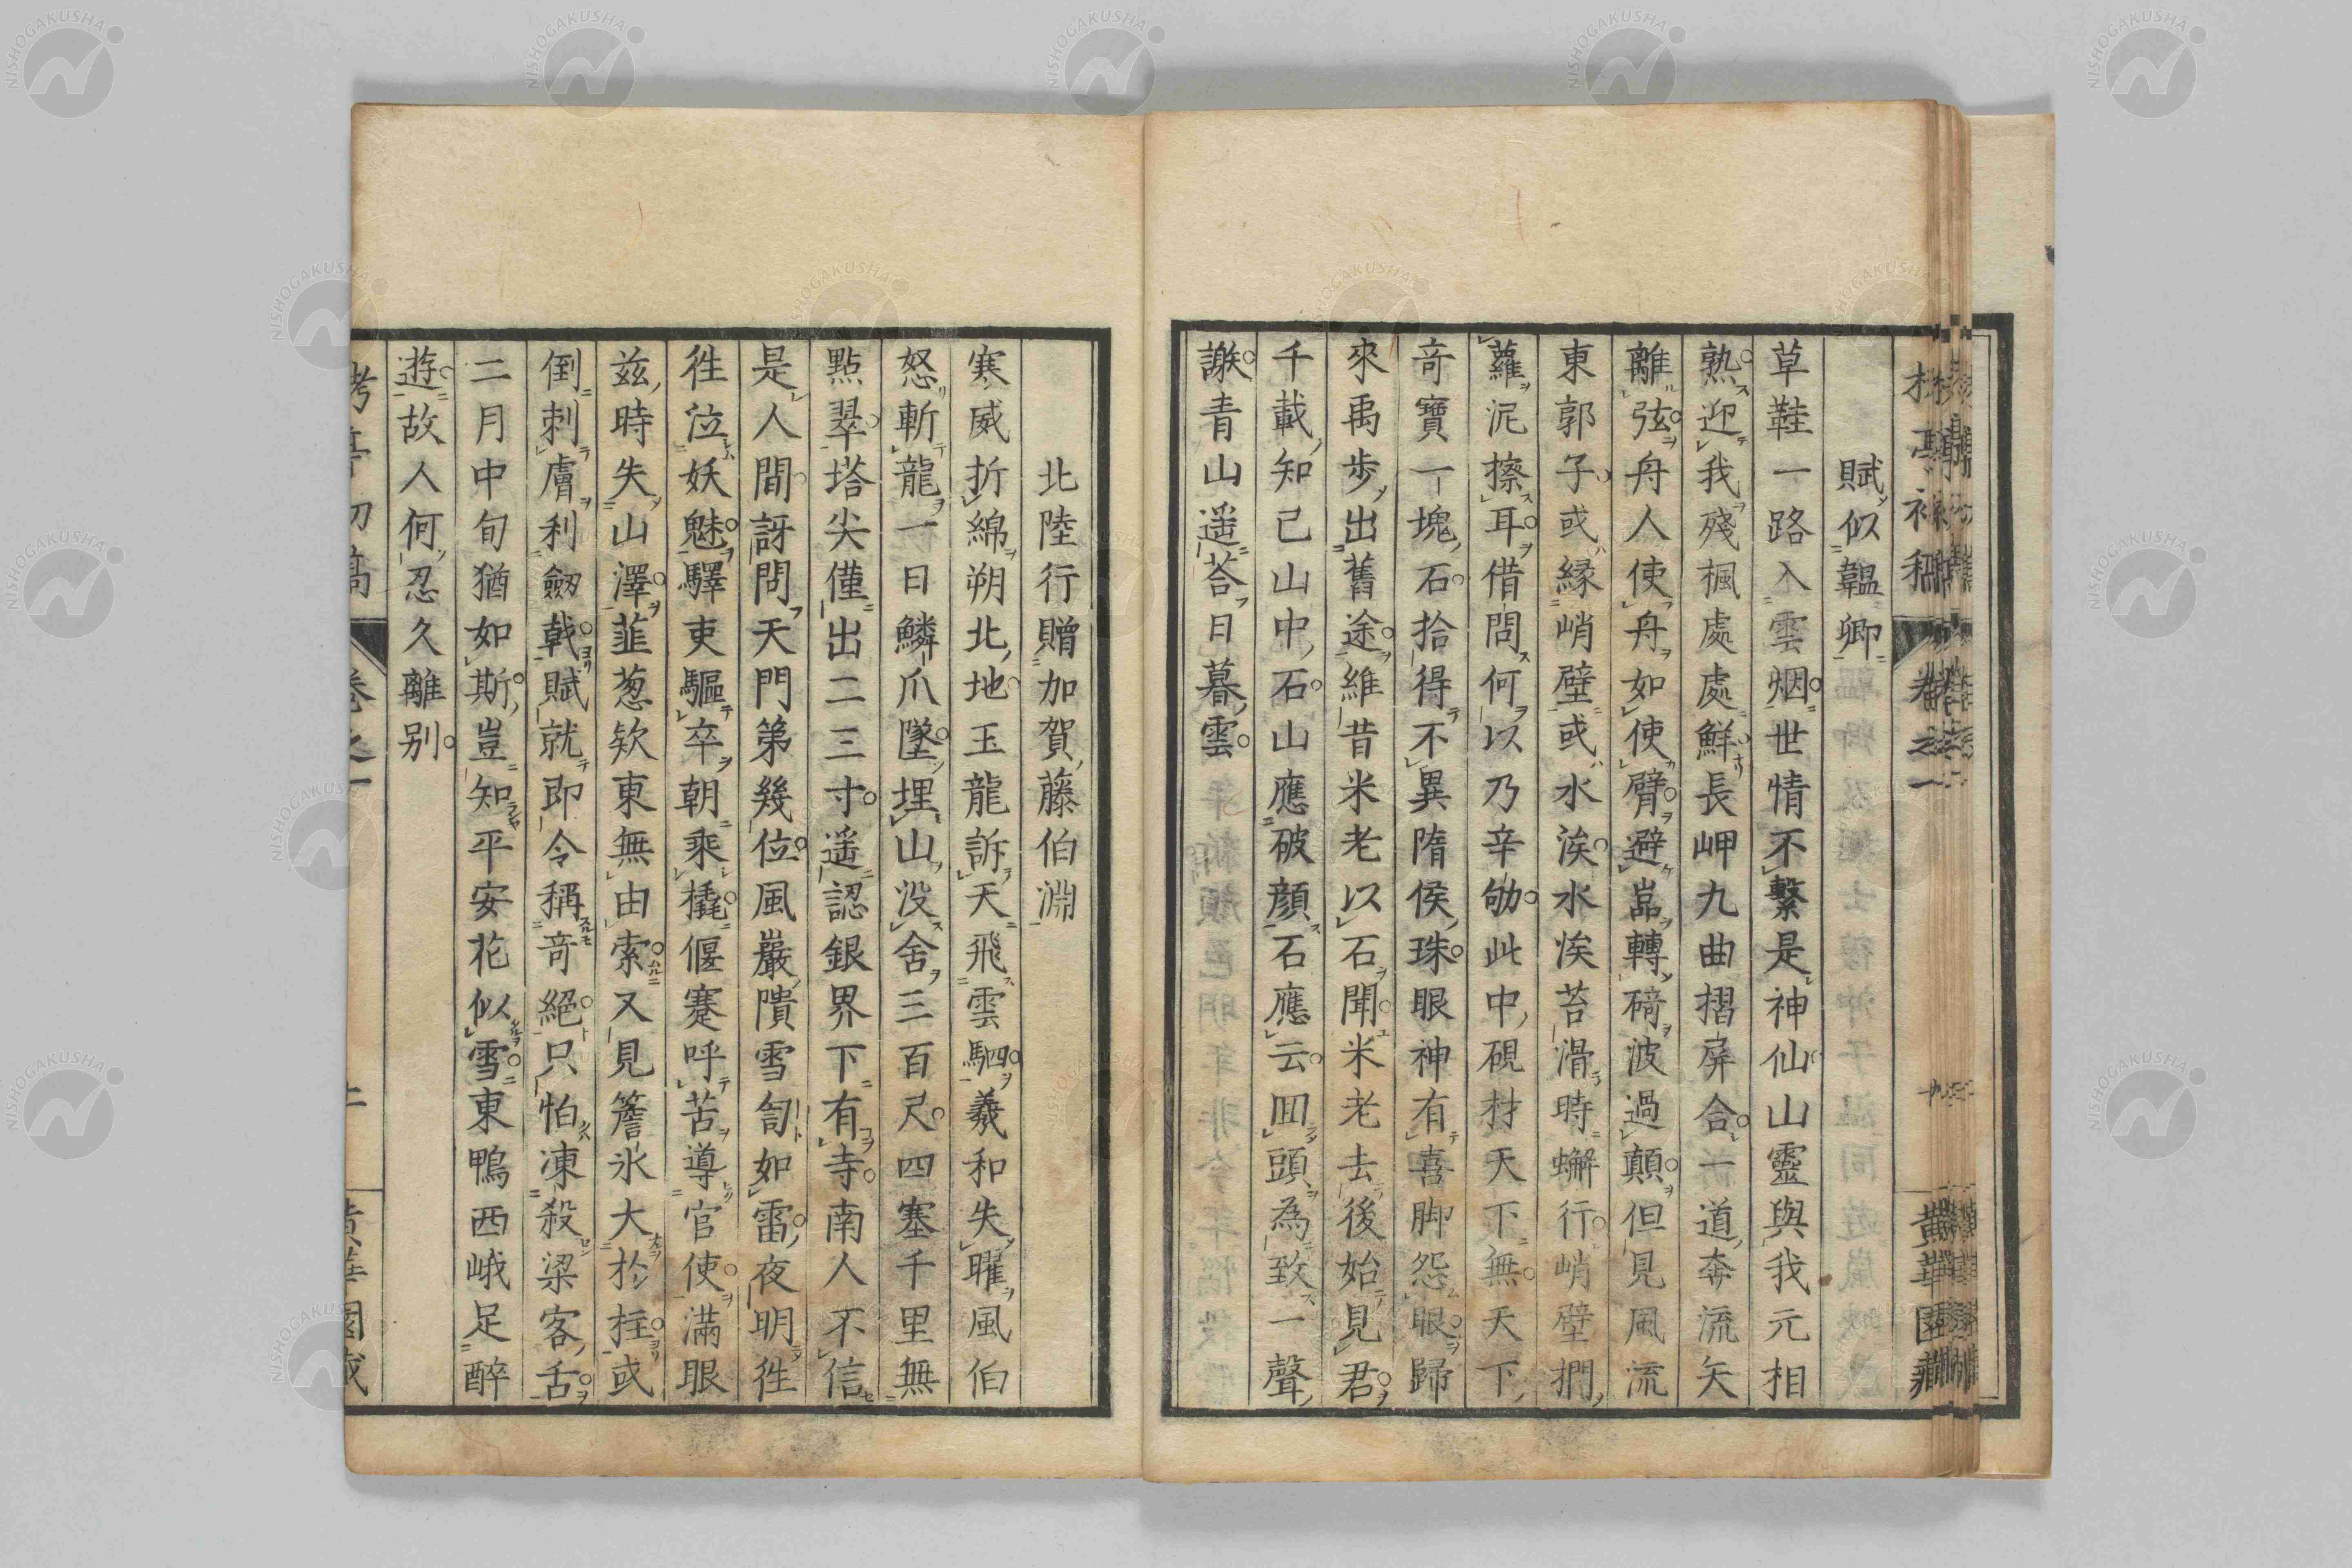 賦似韞卿
草鞋一路入雲烟世情不繫是神仙山靈與我元相
熟迎我殘楓處處鮮長岬九曲摺屏合一道奔流矢
離弦舟人使舟如使臂避嵓轉碕波過顛但見風流
東郭子或緣峭壁或水涘水涘苔滑時蠏行峭壁捫
蘿泥擦耳借問何以乃辛劬此中硯材天下無天下
奇寶一塊石拾得不異隋侯珠眼神有喜脚怨眼歸
來禹步出舊途維昔米老以石聞米老去後始見君
千載知己山中石山應破顏石應云囬頭為致一聲
謝青山遥荅日暮雲
北陸行贈加賀藤伯淵
寒威折綿朔北地玉龍訴天飛雲駟羲和失曜風伯
怒斬龍一日鱗爪墜埋山没舍三百尺四塞千里無
點翠塔尖僅出二三寸遥認銀界下有寺南人不信
是人間訝問天門第幾位風巖隤雪訇如雷夜明徃
徃位妖魅驛吏驅卒朝乘橇偃蹇呼苦導官使滿眼
兹時失山澤韮葱欵東無由索又見簷氷大於柱或
倒刺膚利劔戟賦就即令稱奇絕只怕凍殺梁客舌
二月中旬猶如斯豈知平安花似雪東鴨西峨足醉
遊故人何忍久離别
卷之一
黄華園藏
NISHOGAKUSHA